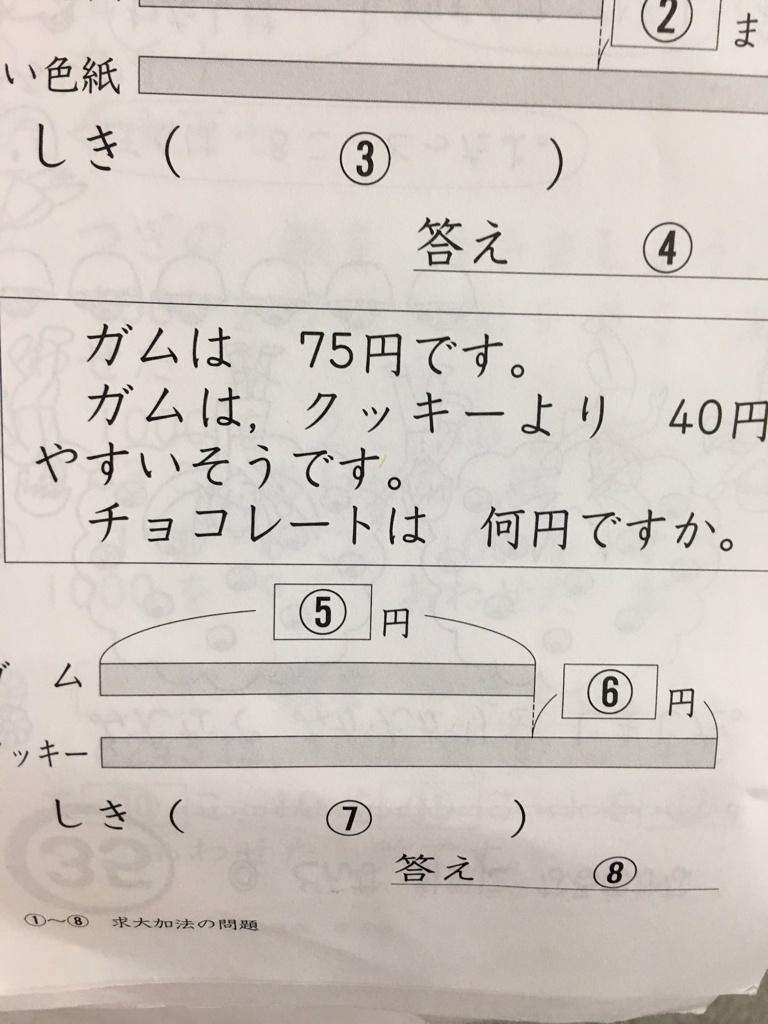 ② ま
い色紙
しき ( ③ )
答え ④
ガムは 75円です。
ガムは, クッキーより 40円
やすいそうです。
チョコレートは 何円ですか。
⑤ 円
ム
⑥ 円
ッキー
しき ( ⑦ )
答え ⑧
①〜⑧ 求大加法の問題